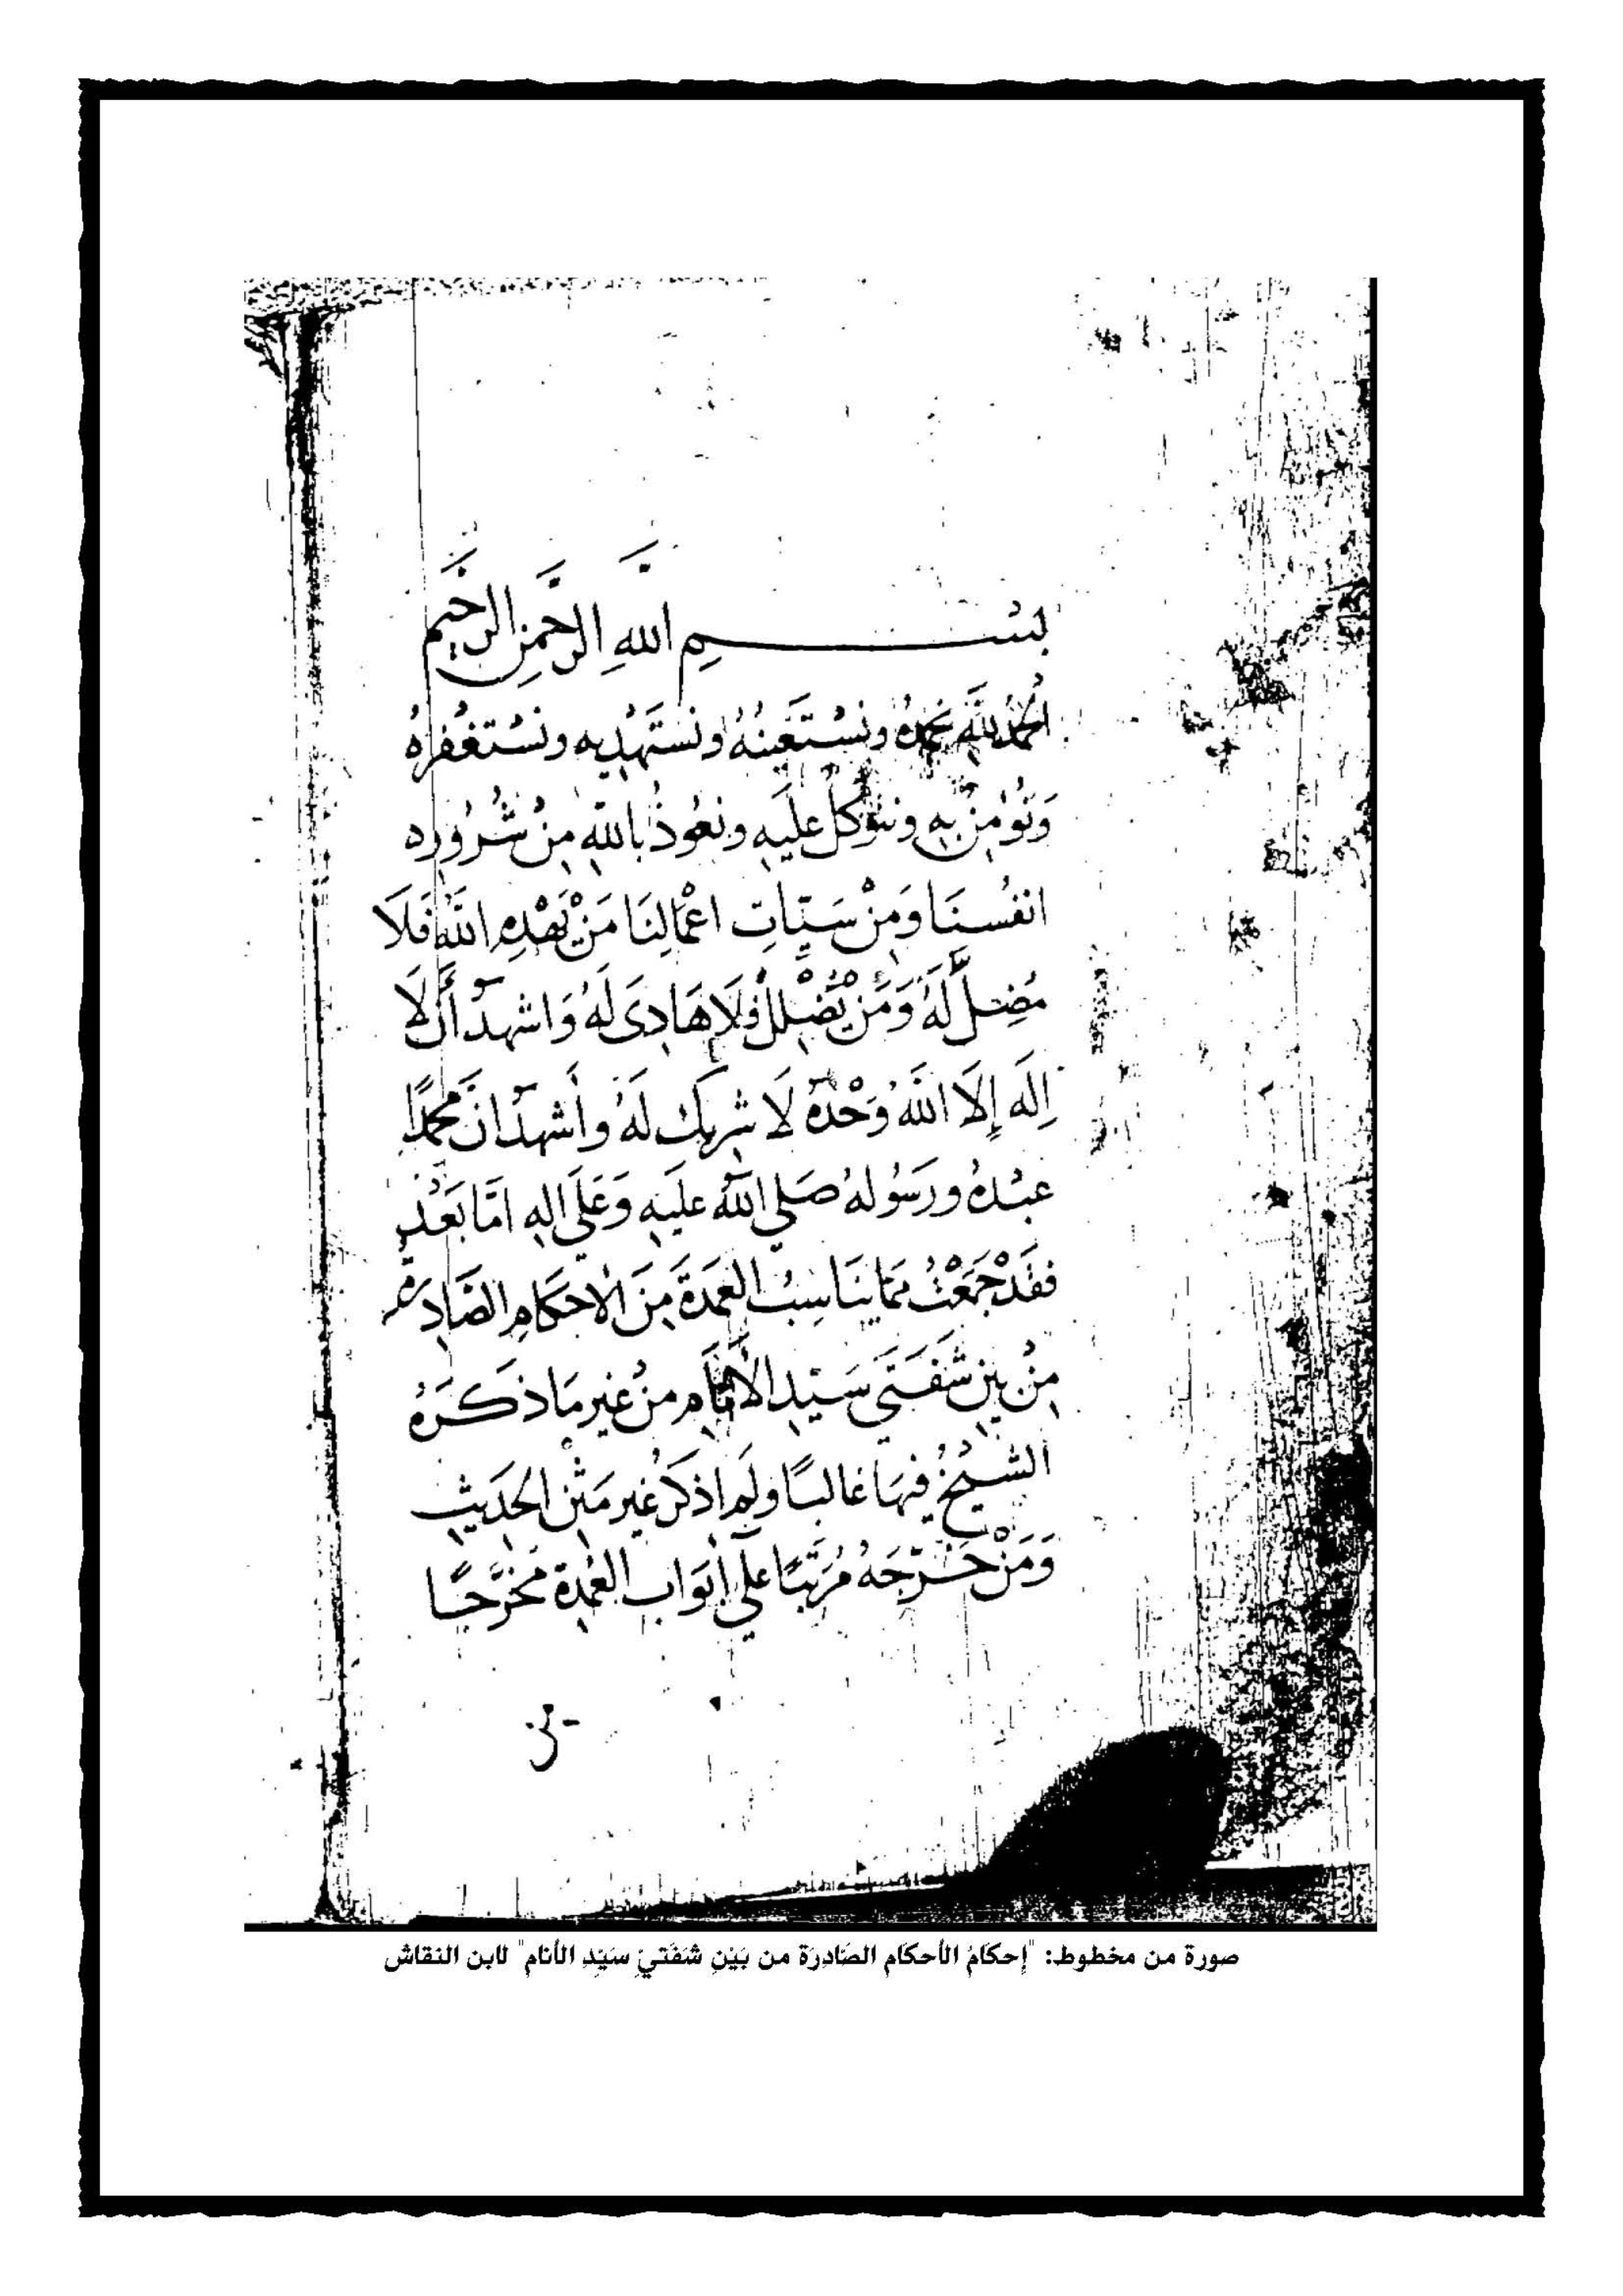 بسم الله الرحمن الرحيم
الحمد لله نحمده ونستعينه ونستهديه ونستغفره
ونؤمن به ونتوكل عليه ونعوذ بالله من شرور
انفسنا ومن سيات اعمالنا من يهده الله فلا
مضل له ومن يضلل فلا هادى له واشهد أن لا
إله إلا الله وحده لا شريك له وأشهد ان محمدًا
عبده ورسوله صلي الله عليه وعلي اله امّا بعد
فقد جمعت مما يناسب العمدة من الاحكام الصّادرة
من بين شفتي سيد الأنام من غير ما ذكره
الشيخ فيها غالبًا ولم اذكر غير متن الحديث
ومن خرّجه مُرتّبًا علي أبواب العمدة مخرّجًا
صورة من مخطوط: "إحكَامُ الأحكَام الصَّادِرَة من بَيْنِ شَفَتيْ سَيِّدِ الأنام" لابن النقاش